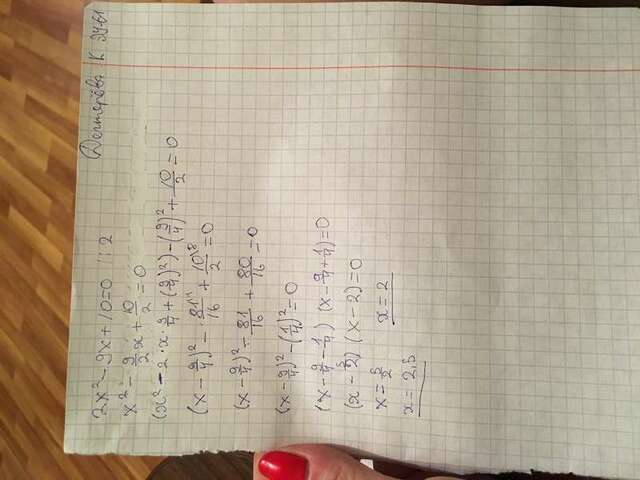 2x² - 9x + 10 = 0 | : 2
К ЭУ-61
x² - 9/2 x + 10/2 = 0
(x² - 2 · x · 9/4 + (9/4)²) - (9/4)² + 10/2 = 0
(x - 9/4)² - 81\1/16 + 10\8/2 = 0
(x - 9/4)² - 81/16 + 80/16 = 0
(x - 9/4)² - (1/4)² = 0
(x - 9/4 - 1/4) (x - 9/4 + 1/4) = 0
(x - 5/2) (x - 2) = 0
x = 5/2 x = 2
x = 2,5